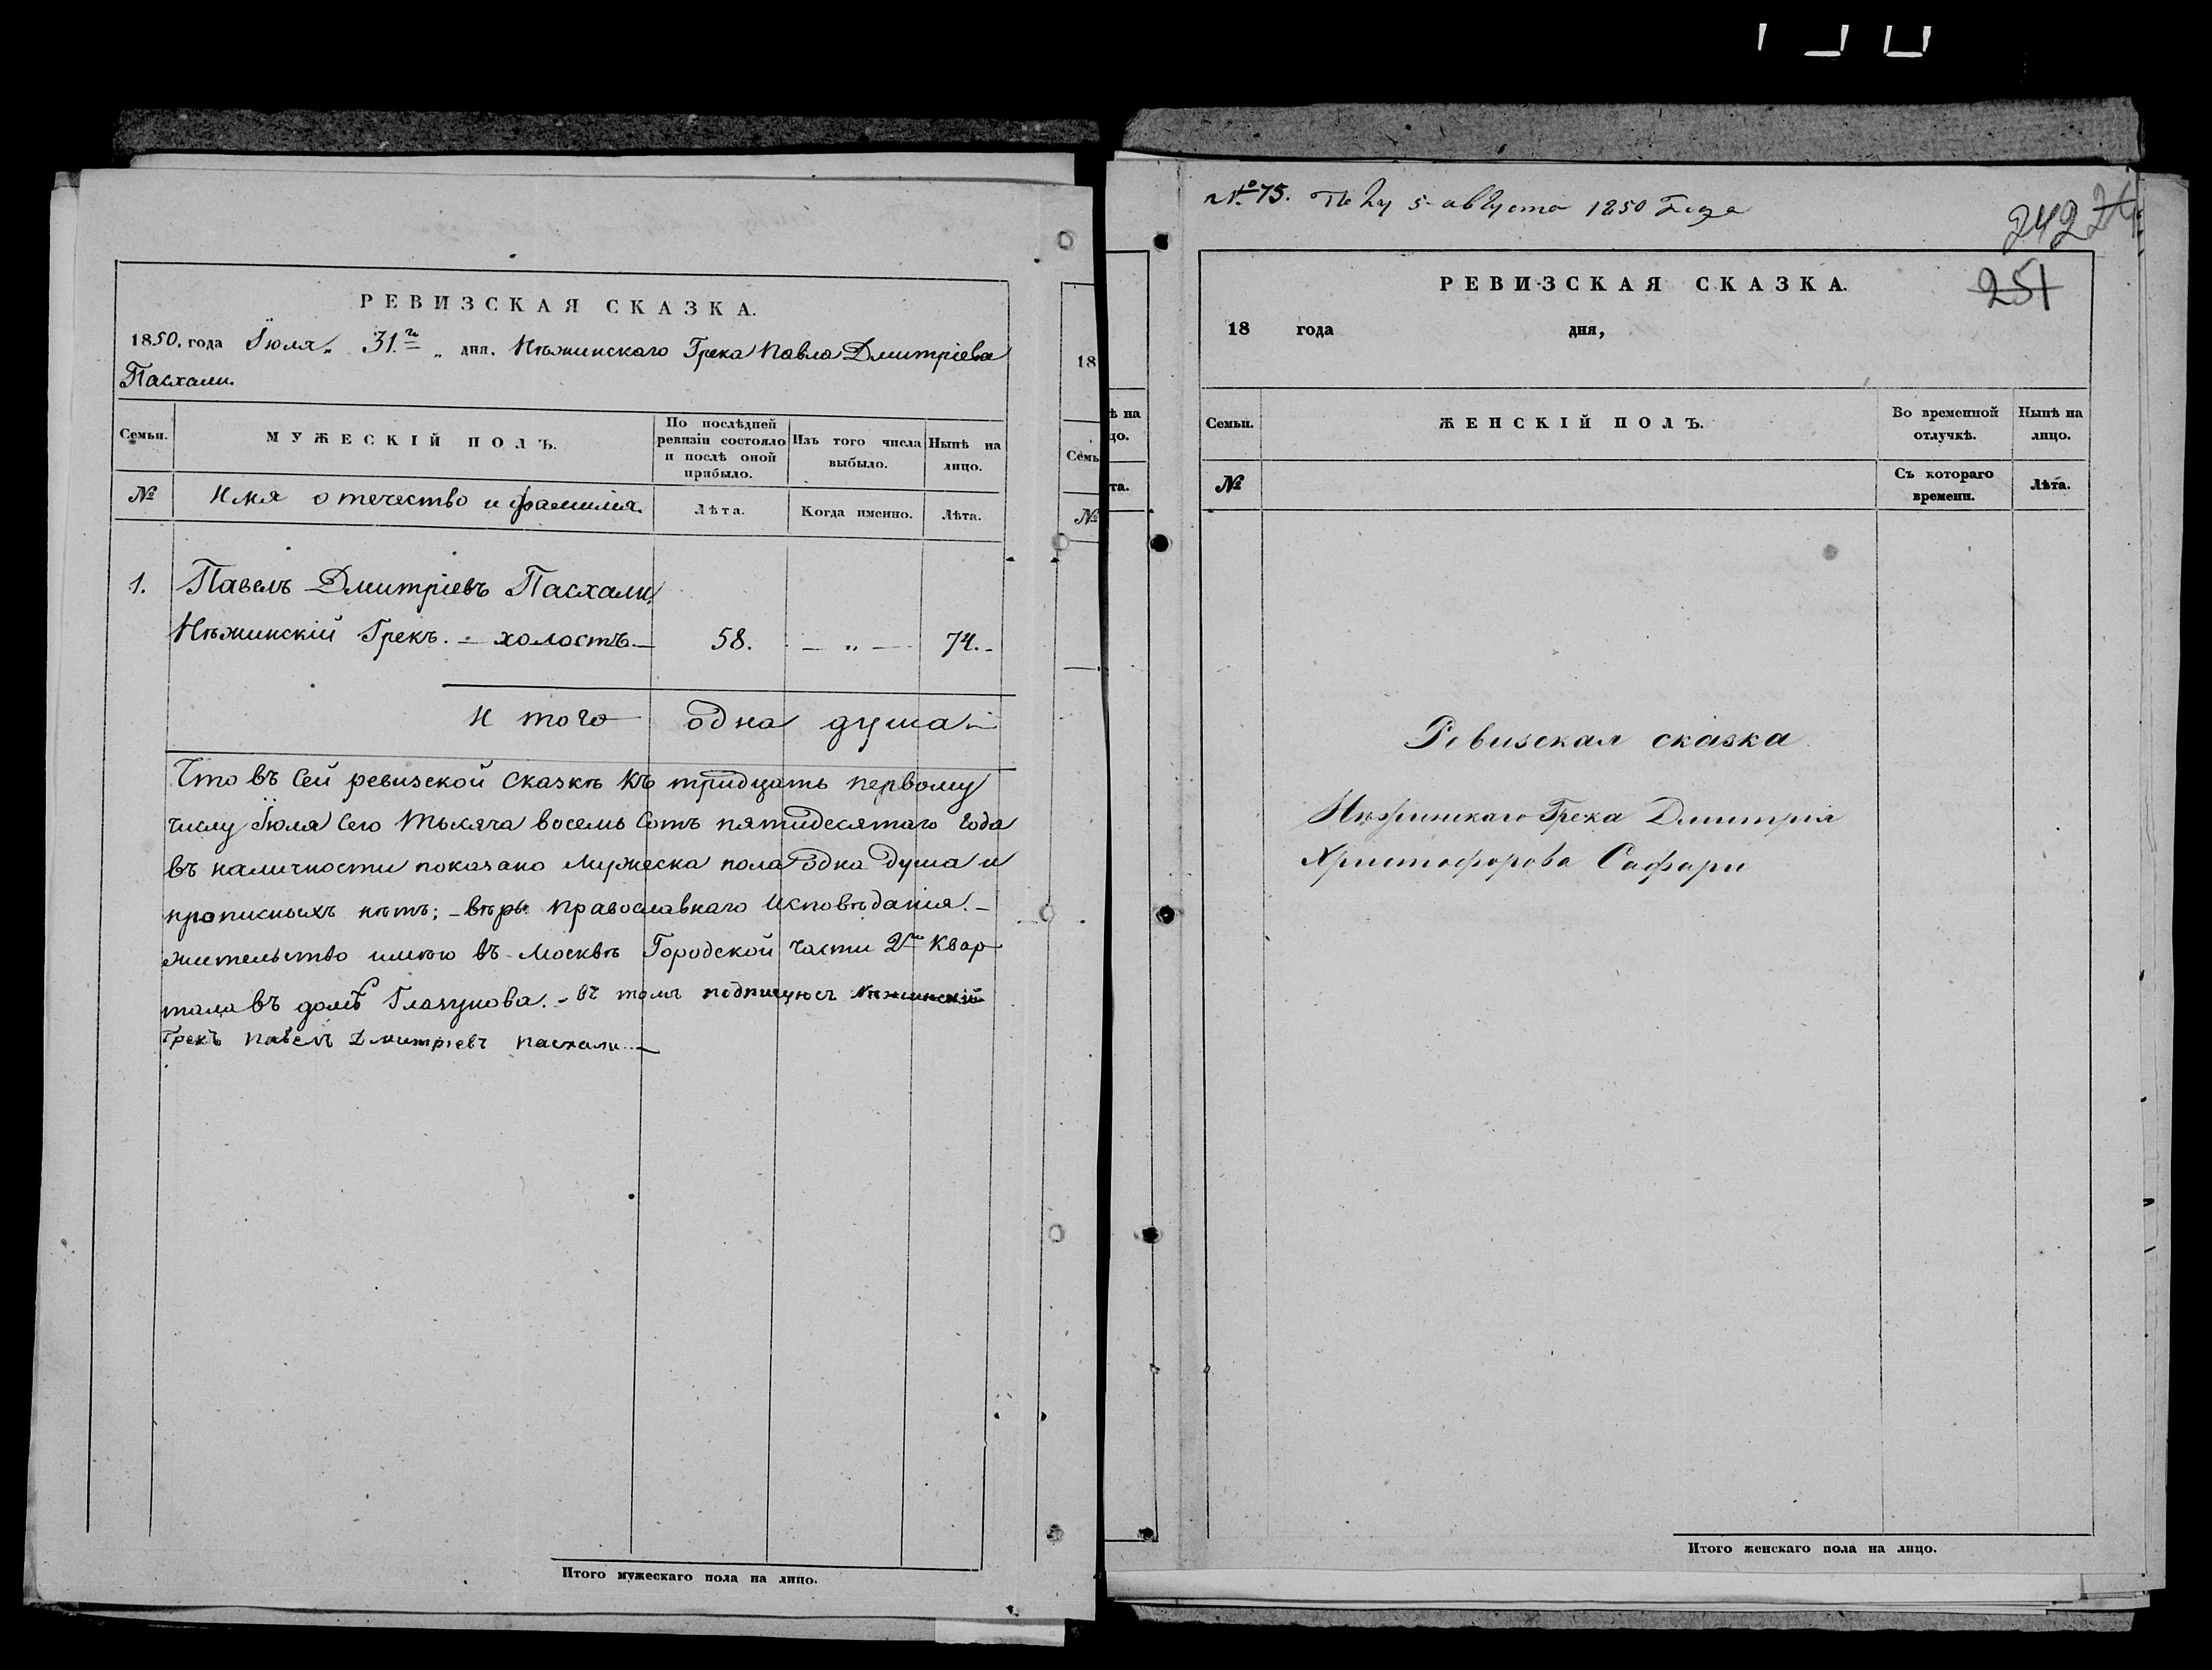 РЕВИЗСКАЯ СКАЗКА.
1850. года Іюля „ 31.го „ дня. Нѣжинскаго Грека Павла Дмитріева
Пасхали.
Семьи.
МУЖЕСКІЙ ПОЛЪ.
По послѣдней
ревизіи состояло
и послѣ оной
прибыло.
Изъ того числа
выбыло.
Нынѣ на
лицо.
№
Имя отечество и фамилія.
Лѣта.
Когда именно.
Лѣта.
1. Павелъ Дмитріевъ Пасхали,
Нѣжинскій Грекъ. – холостъ. – 58. – „ – 74. -
И того одна душа
Что въ сей ревизской сказкѣ къ тридцать первому
числу Іюля сего тысяча восемь сотъ пятидесятаго года
въ наличности показано мужеска пола одна душа и
прописныхъ нѣтъ; – вѣры православнаго исповѣданія. –
жительство имѣю въ Москвѣ Городской части 2го Квар
тала въ домѣ Глазунова. – въ томъ подпишуюсъ Нѣжинскій
Грекъ павелъ Дмитріевъ пасхали. –
Итого мужескаго пола на лицо.
18
Семь
№
ѣ на
цо.
та.
№ 75. 5 августа 1850 Года
242
251
РЕВИЗСКАЯ СКАЗКА.
18 года дня,
Семьи.
ЖЕНСКІЙ ПОЛЪ.
Во временной
отлучкѣ.
Нынѣ на
лицо.
№
Съ котораго
времени.
Лѣта.
Ревизская сказка
Нѣжинскаго Грека Дмитрія
Христофорова Сафари
Итого женскаго пола на лицо.